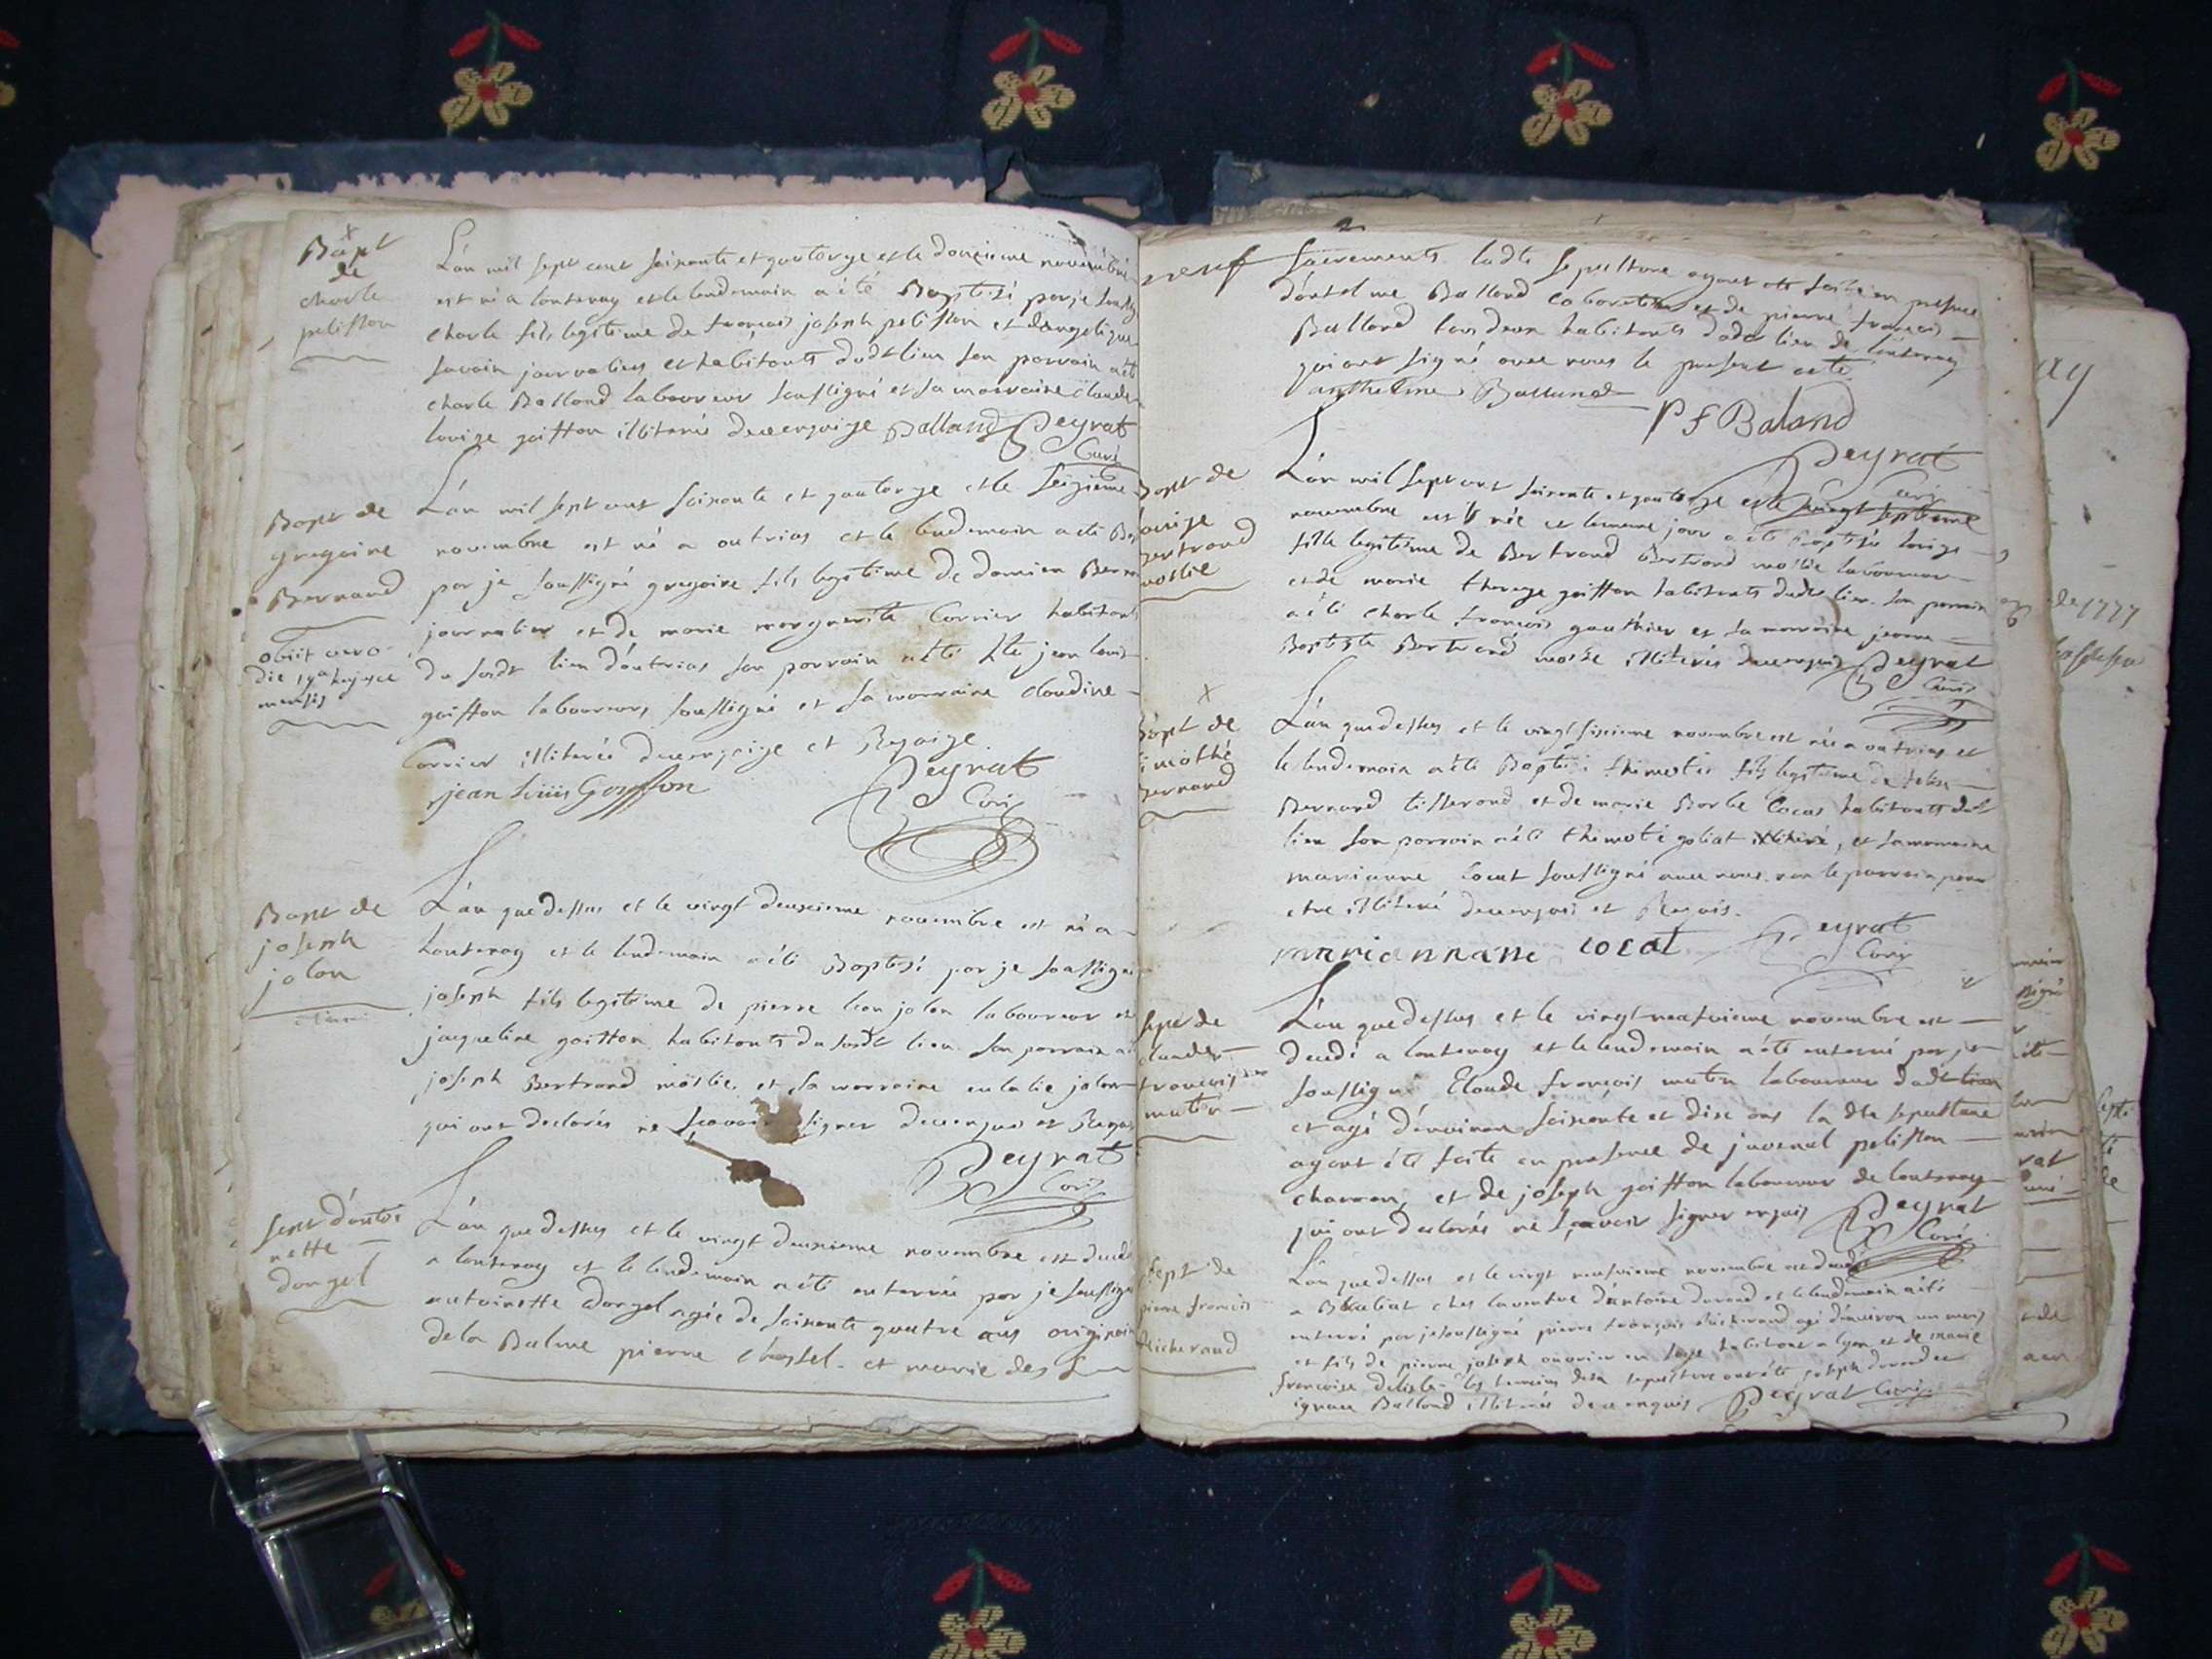 Bapt
de
charle
pelisson
L'an mil sept cent soixante et quatorze et le douzieme novembre
est né a lontenay et le lendemain a été Baptisé par je soussi
charle fils legitime de françois joseph pelisson et d'angelique
savain journaliers et habitants dudt lieu son parrain a été
charle Balland laboureur soussigné et sa marraine claude
louize goiffon illiterée de ce enquize Balland Peyrat
Curé
Bapt de
gregoire
Bernard
obiit
die 19a hujusce
mensis
L'an mil sept cent soixante et quatorze et le seizieme
novembre est né a outrias et le lendemain a été Bap
par je soussigné gregoire fils legitime de damien Berna
journalier et de marie marguerite Carrier habitants
du susdt lieu d'outrias son parrain a été jean louis
goiffon laboureur soussigné et sa marraine claudine
Carrier illiterée de ce enquize et Requize
jean Louis Goiffon Peyrat
Curé
Bapt de
joseph
jolon
L'an que dessus et le vingt deuxieme novembre est né a
lontenay et le lendemain a été Baptisé par je soussigné
joseph fils legitime de pierre leon jolon laboureur et
jacqueline goiffon habitants du susdt lieu son parrain a
joseph Bertrand moslie et sa marraine eulalie jolon
qui ont declarés ne sçavoir signer de ce enquis et Requis
Peyrat
Curé
sept d'antoi
nette
dangel
L'an que dessus et le vingt deuxieme novembre est decedé
a lontenay et le lendemain a été enterrée par je soussigné
antoinette dangel agée de soixante quatre ans originaire
de la Balme pierre chastel et marie des
neuf sacrements ladte sepulture ayant été faite en presence
d'antelme Balland laboureur et de pierre françois
Balland tous deux habitants dudt lieu de lontenay
qui ont signé avec nous le present acte
anthelme Balland
P f Baland
Peyrat
Curé
Bapt de
louize
Bertrand
moslie
L'an mil sept cent soixante et quatorze et le vingt septieme
novembre est née et le meme jour a été Baptisée louize
fille legitime de Bertrand Bertrand moslie laboureur
et de marie thereze goiffon habitants dudt lieu son parrain
a été charle françois gauthier et sa marraine jeanne
Baptiste Bertrand moslie illiterés de ce enquis Peyrat
Curé
Bapt de
timothé
Bernard
L'an que dessus et le vingt sixieme novembre est né a outrias et
le lendemain a été Baptisé thimotée fils legitime de
Bernard tisserand et de marie Barbe Cocat habitants dudt
lieu son parrain a été thimoté goliat illiteré, et sa marraine
marianne Cocat soussigné avec nous non le parrain pour
etre illiteré de ce enquis et Requis.
marriannane cocat Peyrat
Curé
sept de
claude
françois
mutin
L'an que dessus et le vingt neufvieme novembre est
decedé a lontenay et le lendemain a été enterré par je
soussigné Claude françois mutin laboureur dudt lieu
et agé d'environ soixante et dix ans la dte sepulture
ayant été faite en presence de juvenal pelisson
charron, et de joseph goiffon laboureur de lontenay
qui ont declarés ne sçavoir signer enquis Peyrat
Curé
sept de
pierre françois
Richerand
L'an que dessus et le vingt neufvieme novembre est decedé
a chez laventve d'antoine durand et le lendemain a été
enterré par je soussigné pierre françois Richerand agé d'environ un mois
et fils de pierre joseph ouvrier en soye habitant a lyon et de marie
françoise delisle les temoins de sa sepulture ont été joseph durand et
ignace Balland illiterés de ce enquis Peyrat Curé
de 1777